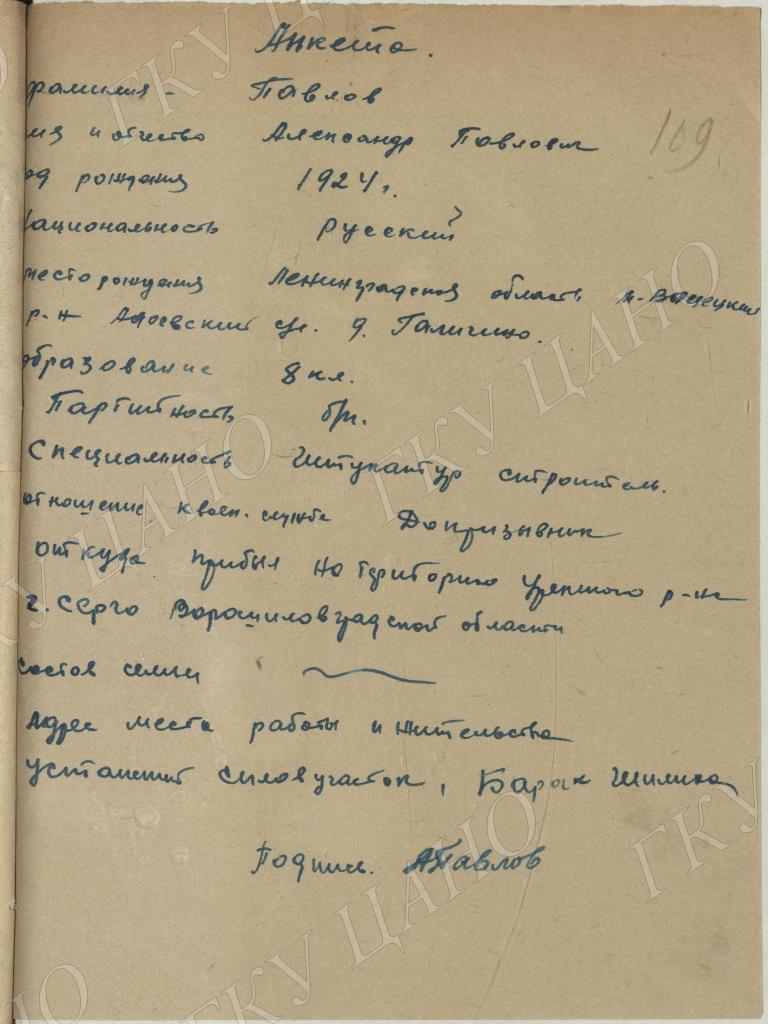 Анкета.
фамилия - Павлов
мя и отчество Александр Павлович
109
од рождения 1924 г.
Национальность русский
место рождения Ленинградская область
р-н с/с. д. Галичино.
образование 8 кл.
Партитность б/п.
Специальность Штукатур ситроитель.
отношение к воен. службе Допризывник
откуда прибыл на територию Уренского р-на
г. Серго Ворошиловградской области
состов семии
Адрес места работы и жительства
участок, Барак Шилика
Подпись. АПавлов
ГКУ ЦАНО
ГКУ ЦАНО
ГКУ ЦАНО
ГКУ ЦАНО
ГКУ ЦАНО